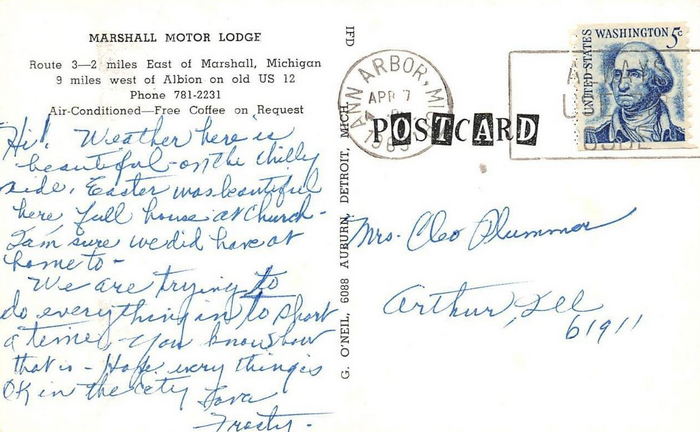 MARSHALL MOTOR LODGE
Route 3—2 miles East of Marshall, Michigan
9 miles west of Albion on old US 12
Phone 781-2231
Air-Conditioned—Free Coffee on Request
Hi! Weather here is
beautiful - on the chilly
side. Easter was beautiful
here, full house at Church -
I am sure we did have at
home to -
We are trying to
do everything in to short
a time, you know how
that is - Hope everything is
OK in the city Love
Frosty -
IFD
G. O'NEIL, 6088 AUBURN, DETROIT, MICH.
ANN ARBOR, MI
APR 7
POSTCARD
UNITED STATES
WASHINGTON 5c
Mrs. Cleo Plummer
Arthur, Ill
61911